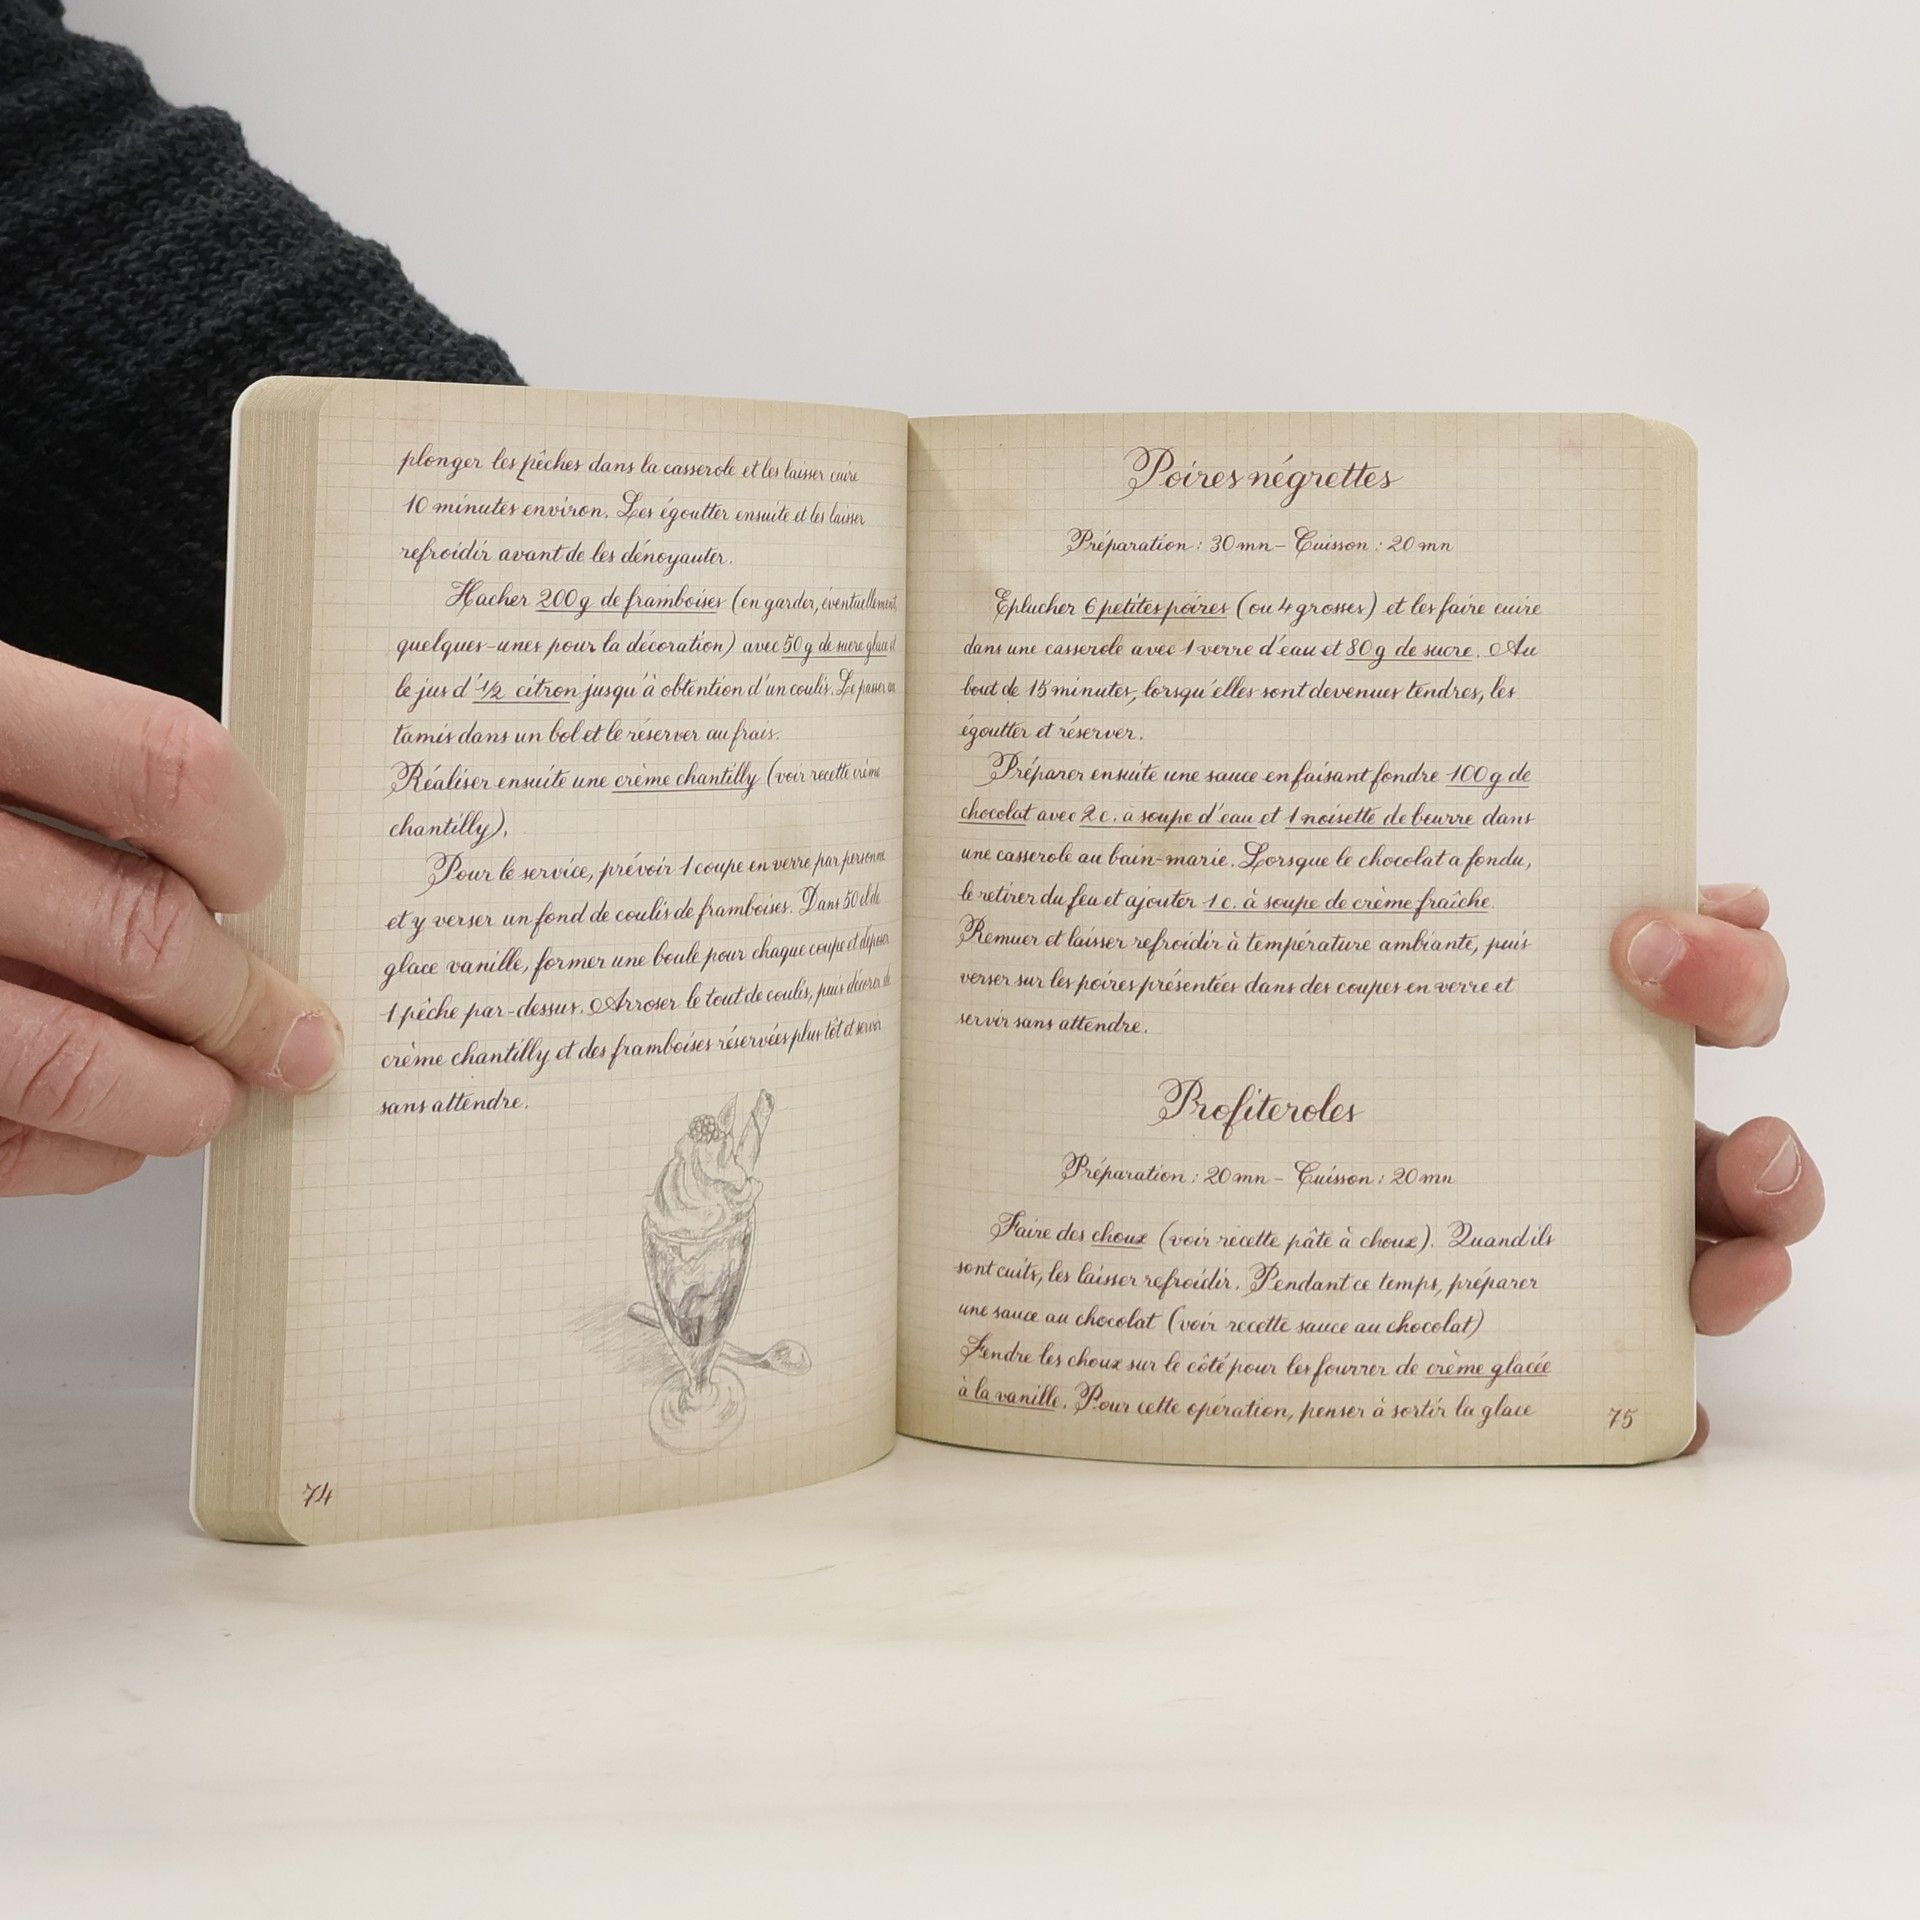 plonger les pêches dans la casserole et les laisser cuire
10 minutes environ. Les égoutter ensuite et les laisser
refroidir avant de les dénoyauter.
Hacher 200g de framboises (en garder, éventuellement,
quelques-unes pour la décoration) avec 50g de sucre glace et
le jus d'1/2 citron jusqu'à obtention d'un coulis. Le passer au
tamis dans un bol et le réserver au frais.
Réaliser ensuite une crème chantilly (voir recette crème
chantilly).
Pour le service, prévoir 1 coupe en verre par personne
et y verser un fond de coulis de framboises. Dans 50 cl de
glace vanille, former une boule pour chaque coupe et déposer
1 pêche par-dessus. Arroser le tout de coulis, puis décorer de
crème chantilly et des framboises réservées plus tôt et servir
sans attendre.
74
Poires négrettes
Préparation : 30 mn - Cuisson : 20 mn
Eplucher 6 petites poires (ou 4 grosses) et les faire cuire
dans une casserole avec 1 verre d'eau et 80g de sucre. Au
bout de 15 minutes, lorsqu'elles sont devenues tendres, les
égoutter et réserver.
Préparer ensuite une sauce en faisant fondre 100g de
chocolat avec 2 c. à soupe d'eau et 1 noisette de beurre dans
une casserole au bain-marie. Lorsque le chocolat a fondu,
le retirer du feu et ajouter 1 c. à soupe de crème fraîche.
Remuer et laisser refroidir à température ambiante, puis
verser sur les poires présentées dans des coupes en verre et
servir sans attendre.
Profiteroles
Préparation : 20 mn - Cuisson : 20 mn
Faire des choux (voir recette pâte à choux). Quand ils
sont cuits, les laisser refroidir. Pendant ce temps, préparer
une sauce au chocolat (voir recette sauce au chocolat)
Fendre les choux sur le côté pour les fourrer de crème glacée
à la vanille. Pour cette opération, penser à sortir la glace
75